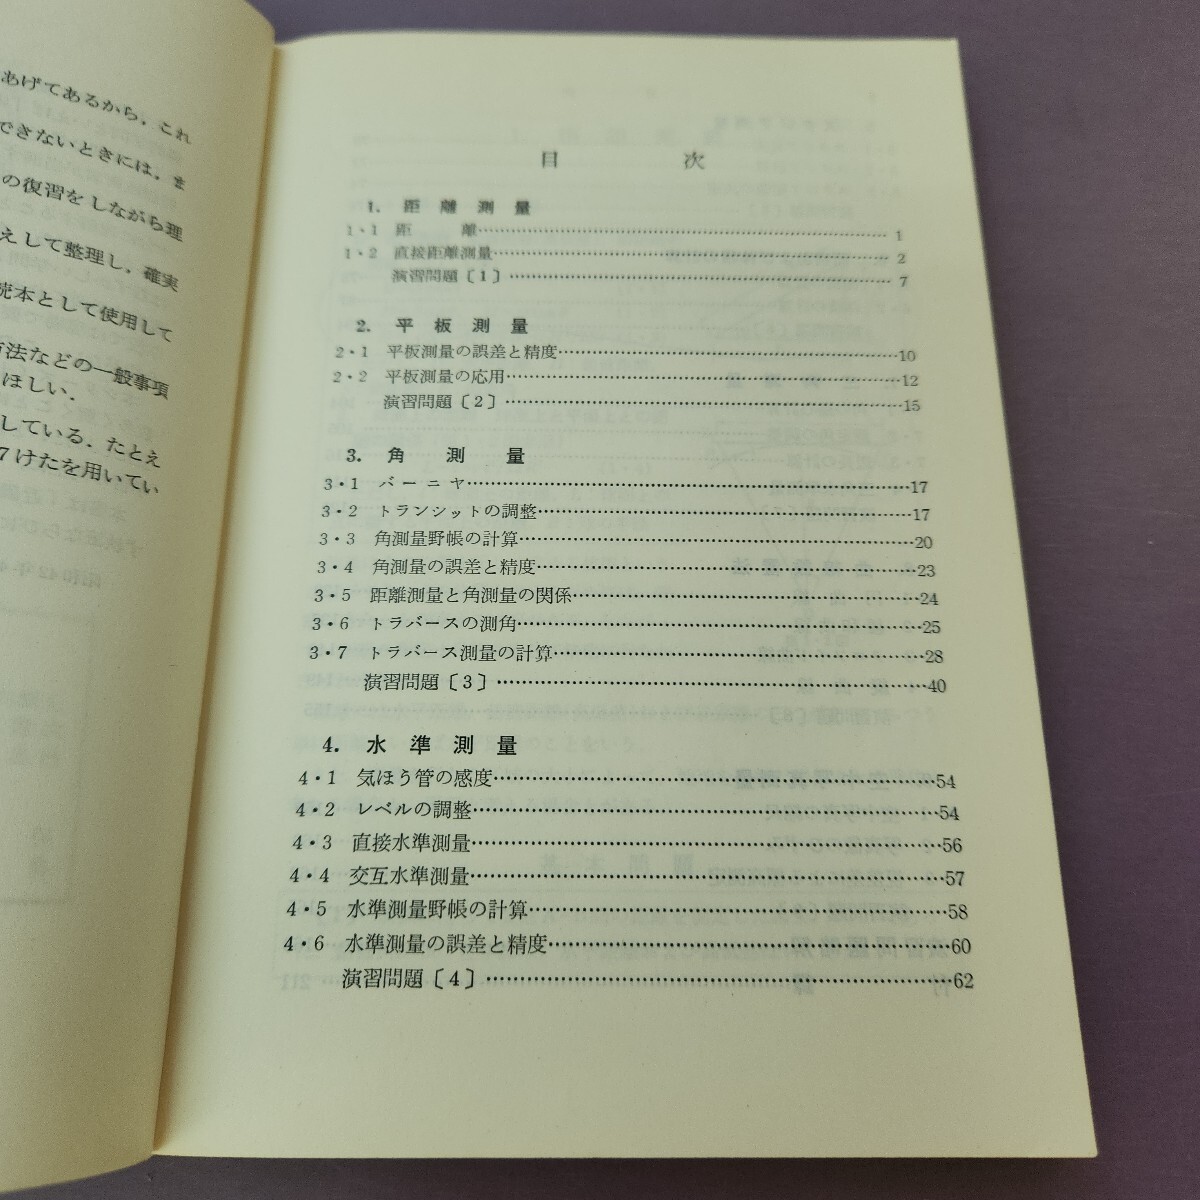 あげてあるから，これ
できないときには，ま
の復習をしながら理
えして整理し，確実
読本として使用して
方法などの一般事項
ほしい．
している．たとえ
7けたを用いてい
目　　　次
1. 距離測量
1・1 距　　離 1
1・2 直接距離測量 2
演習問題〔1〕 7
2. 平板測量
2・1 平板測量の誤差と精度 10
2・2 平板測量の応用 12
演習問題〔2〕 15
3. 角測量
3・1 バーニヤ 17
3・2 トランシットの調整 17
3・3 角測量野帳の計算 20
3・4 角測量の誤差と精度 23
3・5 距離測量と角測量の関係 24
3・6 トラバースの測角 25
3・7 トラバース測量の計算 28
演習問題〔3〕 40
4. 水準測量
4・1 気ほう管の感度 54
4・2 レベルの調整 54
4・3 直接水準測量 56
4・4 交互水準測量 57
4・5 水準測量野帳の計算 58
4・6 水準測量の誤差と精度 60
演習問題〔4〕 62